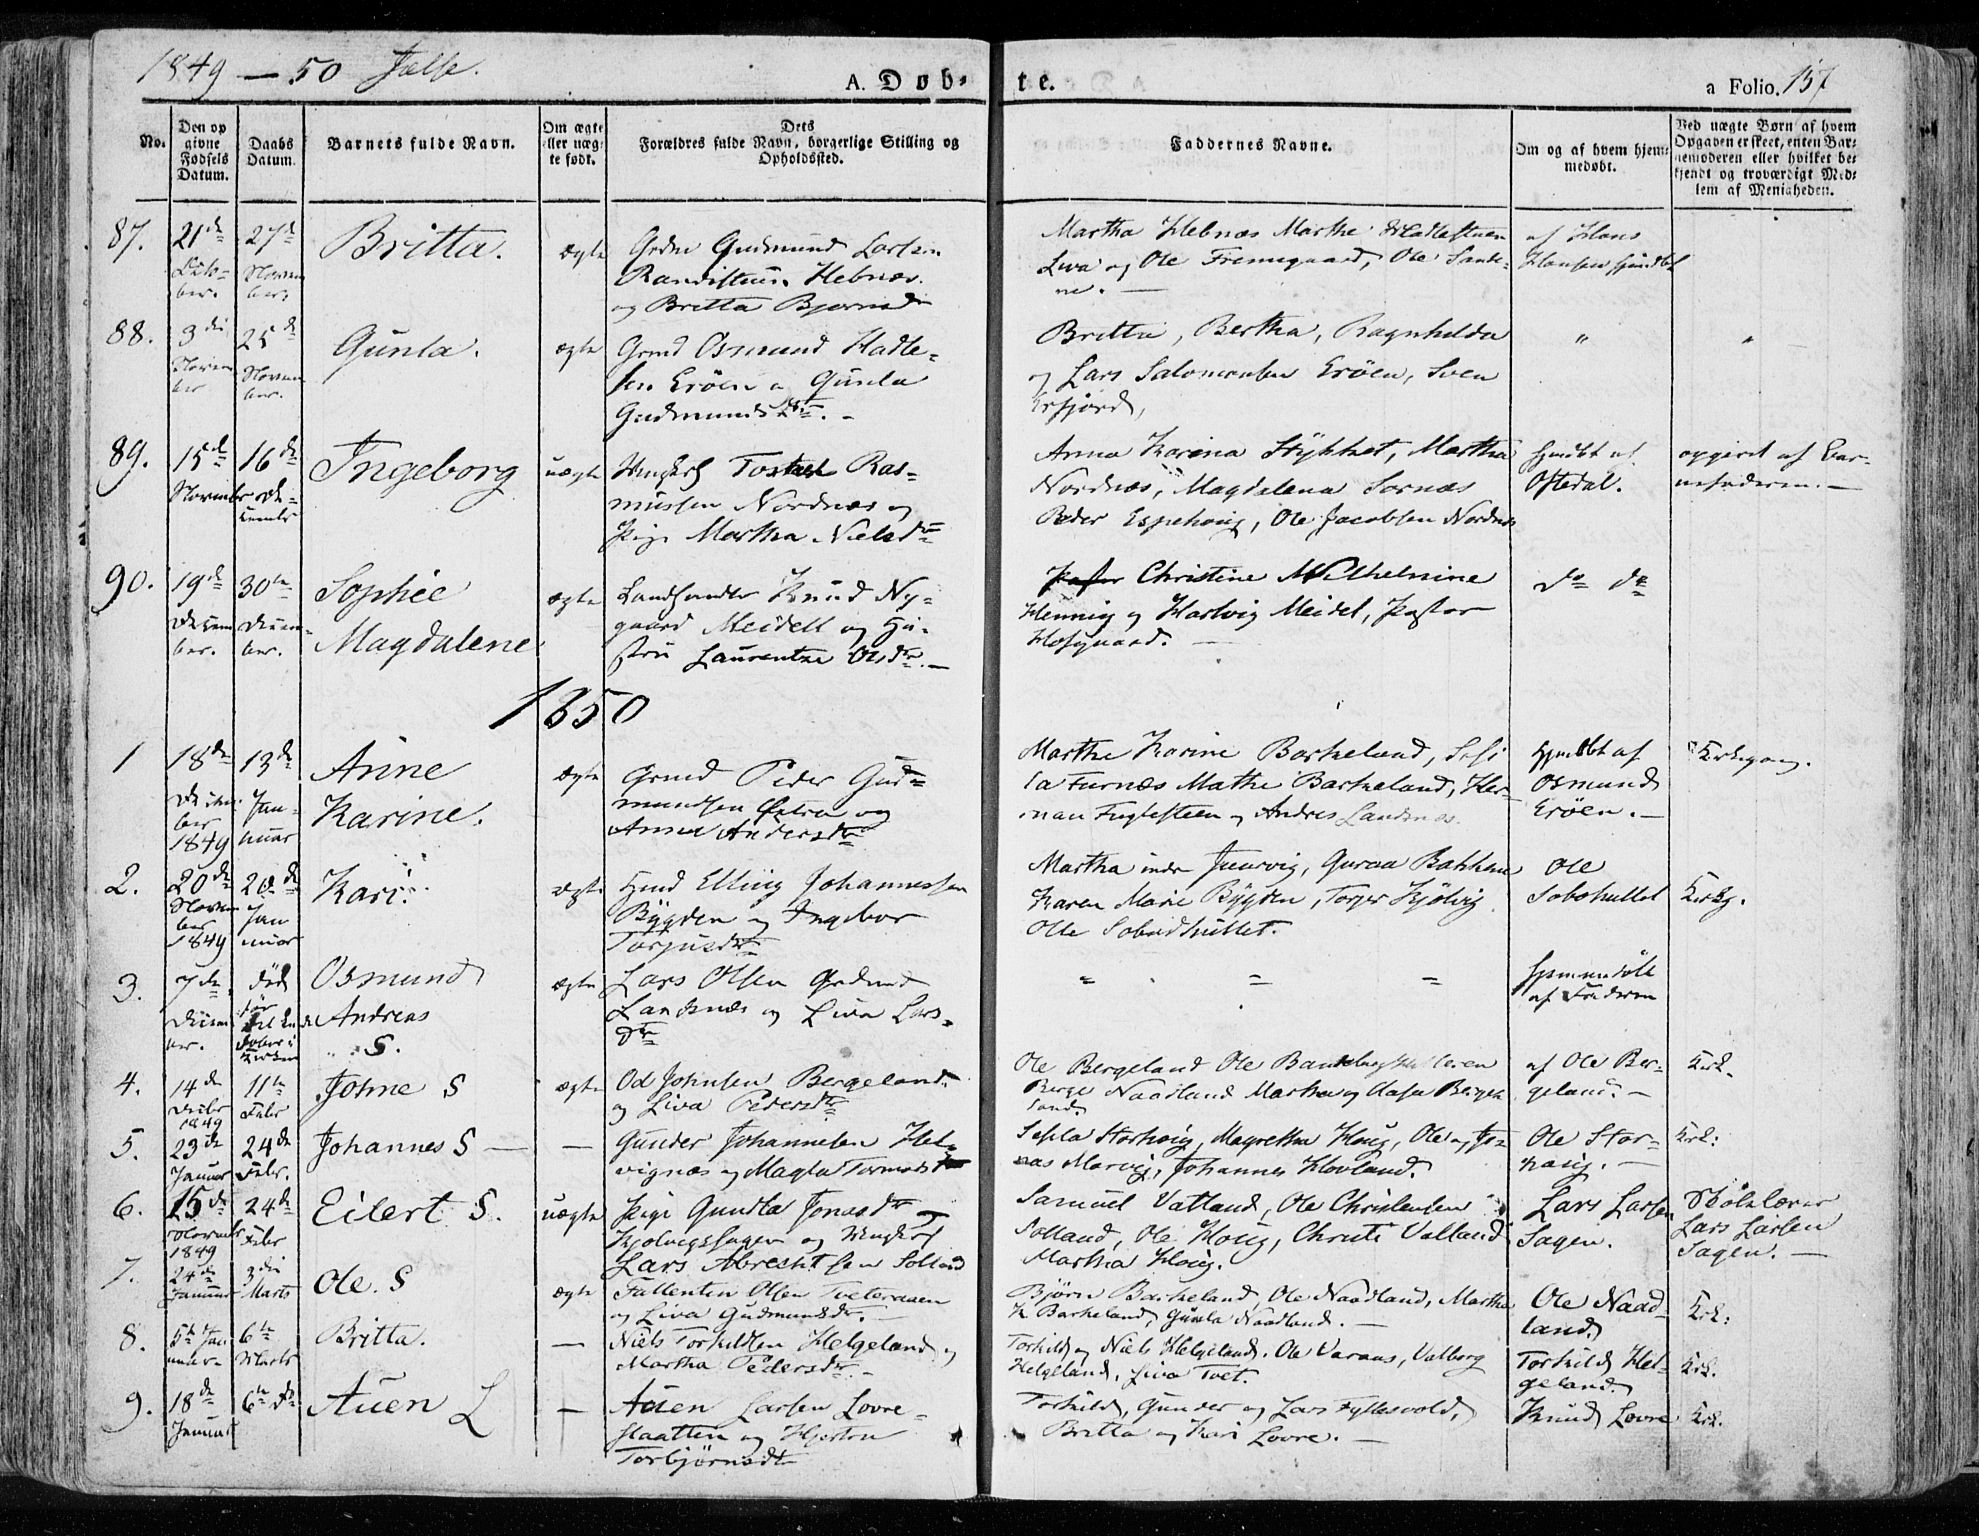 1849 - 50 Jelse.
A. Døb-
te.
a Folio. 157
No.
Den op
givne
Fødsels
Datum.
Daabs
Datum.
Barnets fulde Navn.
Om ægte
eller uæg-
te født.
Dets
Forældres fulde Navn, borgerlige Stilling og
Opholdssted.
Faddernes Navne.
Om og af hvem hjem-
medøbt.
Ved uægte Børn af hvem
Opgaven er skeet, enten Bar-
nemoderen eller hvilket be-
kjendt og troværdigt Med-
lem af Menigheden.
87.
21de
27de
Novem
ber.
Britta.
ægte
Gudmund Larsen
Hebnæs.
og Britta Bjørnsd
Martha Hebnæs Marthe
Liva og Ole Fremgaard, Ole Sande-
ne.
af Hans
Hansen
88.
3die
Novem
ber
25de
Novem
ber.
Gunla.
ægte
Grmd Osmund Hadle-
sen Erøen og Gunla
Gudmundsdtr. -
Britta, Bertha, Ragnhilda
og Lars Salomonsen Erøen, Sven
Erfjord,
"
"
89.
15de
November
16de
De-
cember
Ingeborg
uægte
Ungkarl Ras-
mussen Nordnæs og
Pige Martha Nielsdtr
Anna Karina Stykket, Martha
Nordnæs, Magdalena Sørnæs
Peder Espehoug, Ole Jacobsen Nordnæs
hjmdbt af
Oftedal.
opgivet af Bar-
nefaderen. -
90.
19de
Decem
ber.
30te
Decem-
ber.
Sophie
Magdalene
ægte
Landhandler Knud Ny-
gaard Meidell og Hu-
stru Laurentze Olsdtr. -
Christine Wilhelmine
Hennig og Hartvig Meidel, Pastor
do do
1850
1
18de
Decem-
ber
1849
13de
Jan-
nuar
Anne
Karine.
ægte
Grmd Peder Gud-
mundsen og
Anna Andersdtr
Marthe Karine Barkeland, Sesi
la Furnæs Mathe Barkeland, Her-
man Fuglesteen og Andres Landsnæs.
hjmdbt af
Osmund
Erøen. -
Kirkegang.
2.
20de
Novem
ber
1849
20de
Jan
nuar
Kari.
ægte
Hmd Elling Johannessen
Bygden og Ingebor
Torjusdtr
Martha indr Guroa Bakken
Karen Marie Bygden, Torjer Kjølvig
Ole
Ole
Kirkg.
3.
7de
Decem
ber.
død
før
Daaben i
Kirken
Osmund
Andreas
S.
ægte
Lars Olsen Grdmd
Landsnæs og Liva Lars-
dtr
hjemmedøbt
af Faderen
4.
14de
Decbr
1849
11te
Febr
Johne S
ægte
Od Johnsen Bergeland
og Liva Pedersdtr
Ole Bergeland Ole
Berge Naadland Martha og Aasa Berge
land
af Ole Ber-
geland. -
Kirk.
5.
23de
Januar
24de
Febr.
Johannes S -
-
Gunder Johannesen Hel-
vignæs og Magla Tormods
Sesla Storhoug, Magretha Houg, Ole og Jo-
nas Marvig, Johannes Hovland.
Ole Stor-
houg. -
Kirk:
6.
15de
November
1849
24de
Febr
Eilert S.
uægte
Pige Gundla Jonsdtr
og Ungkarl
Lars Abrechtsen Solland
Samuel Vatland, Ole Christensen
Solland, Ole Houg, Christi Valland
Martha Houg.
Lars Larsen
Sagen.
Skolelærer
Lars Larsen
Sagen. -
7.
24de
Januar
3die
Marts
Ole. S
ægte
Fallentin Olsen Tveteraaen
og Liva Gudmundsdtr. -
Bjørn Barkeland, Ole Naadland, Martha
K Barkeland, Gunla Naadland. -
Ole Naad-
land.
Kirk:
8.
5te Jan
nuar
6te
Marts
Britta.
-
Niels Torkildsen Helgeland og
Martha Pedersdtr. -
Torkild og Niels Helgeland. Ole Varaas, Valborg
Helgeland, Liva Tvet.
Torkild Hel-
geland.
Kirk.
9.
18de
Januar
6te do
Auen L
-
Auen Larsen Lovre-
slaatten og
Torbjørnsdtr
Torkild, Gunder og Lars Fyllesvold,
Britta og Kari Lovre. -
Knud Lovre
Kirk.